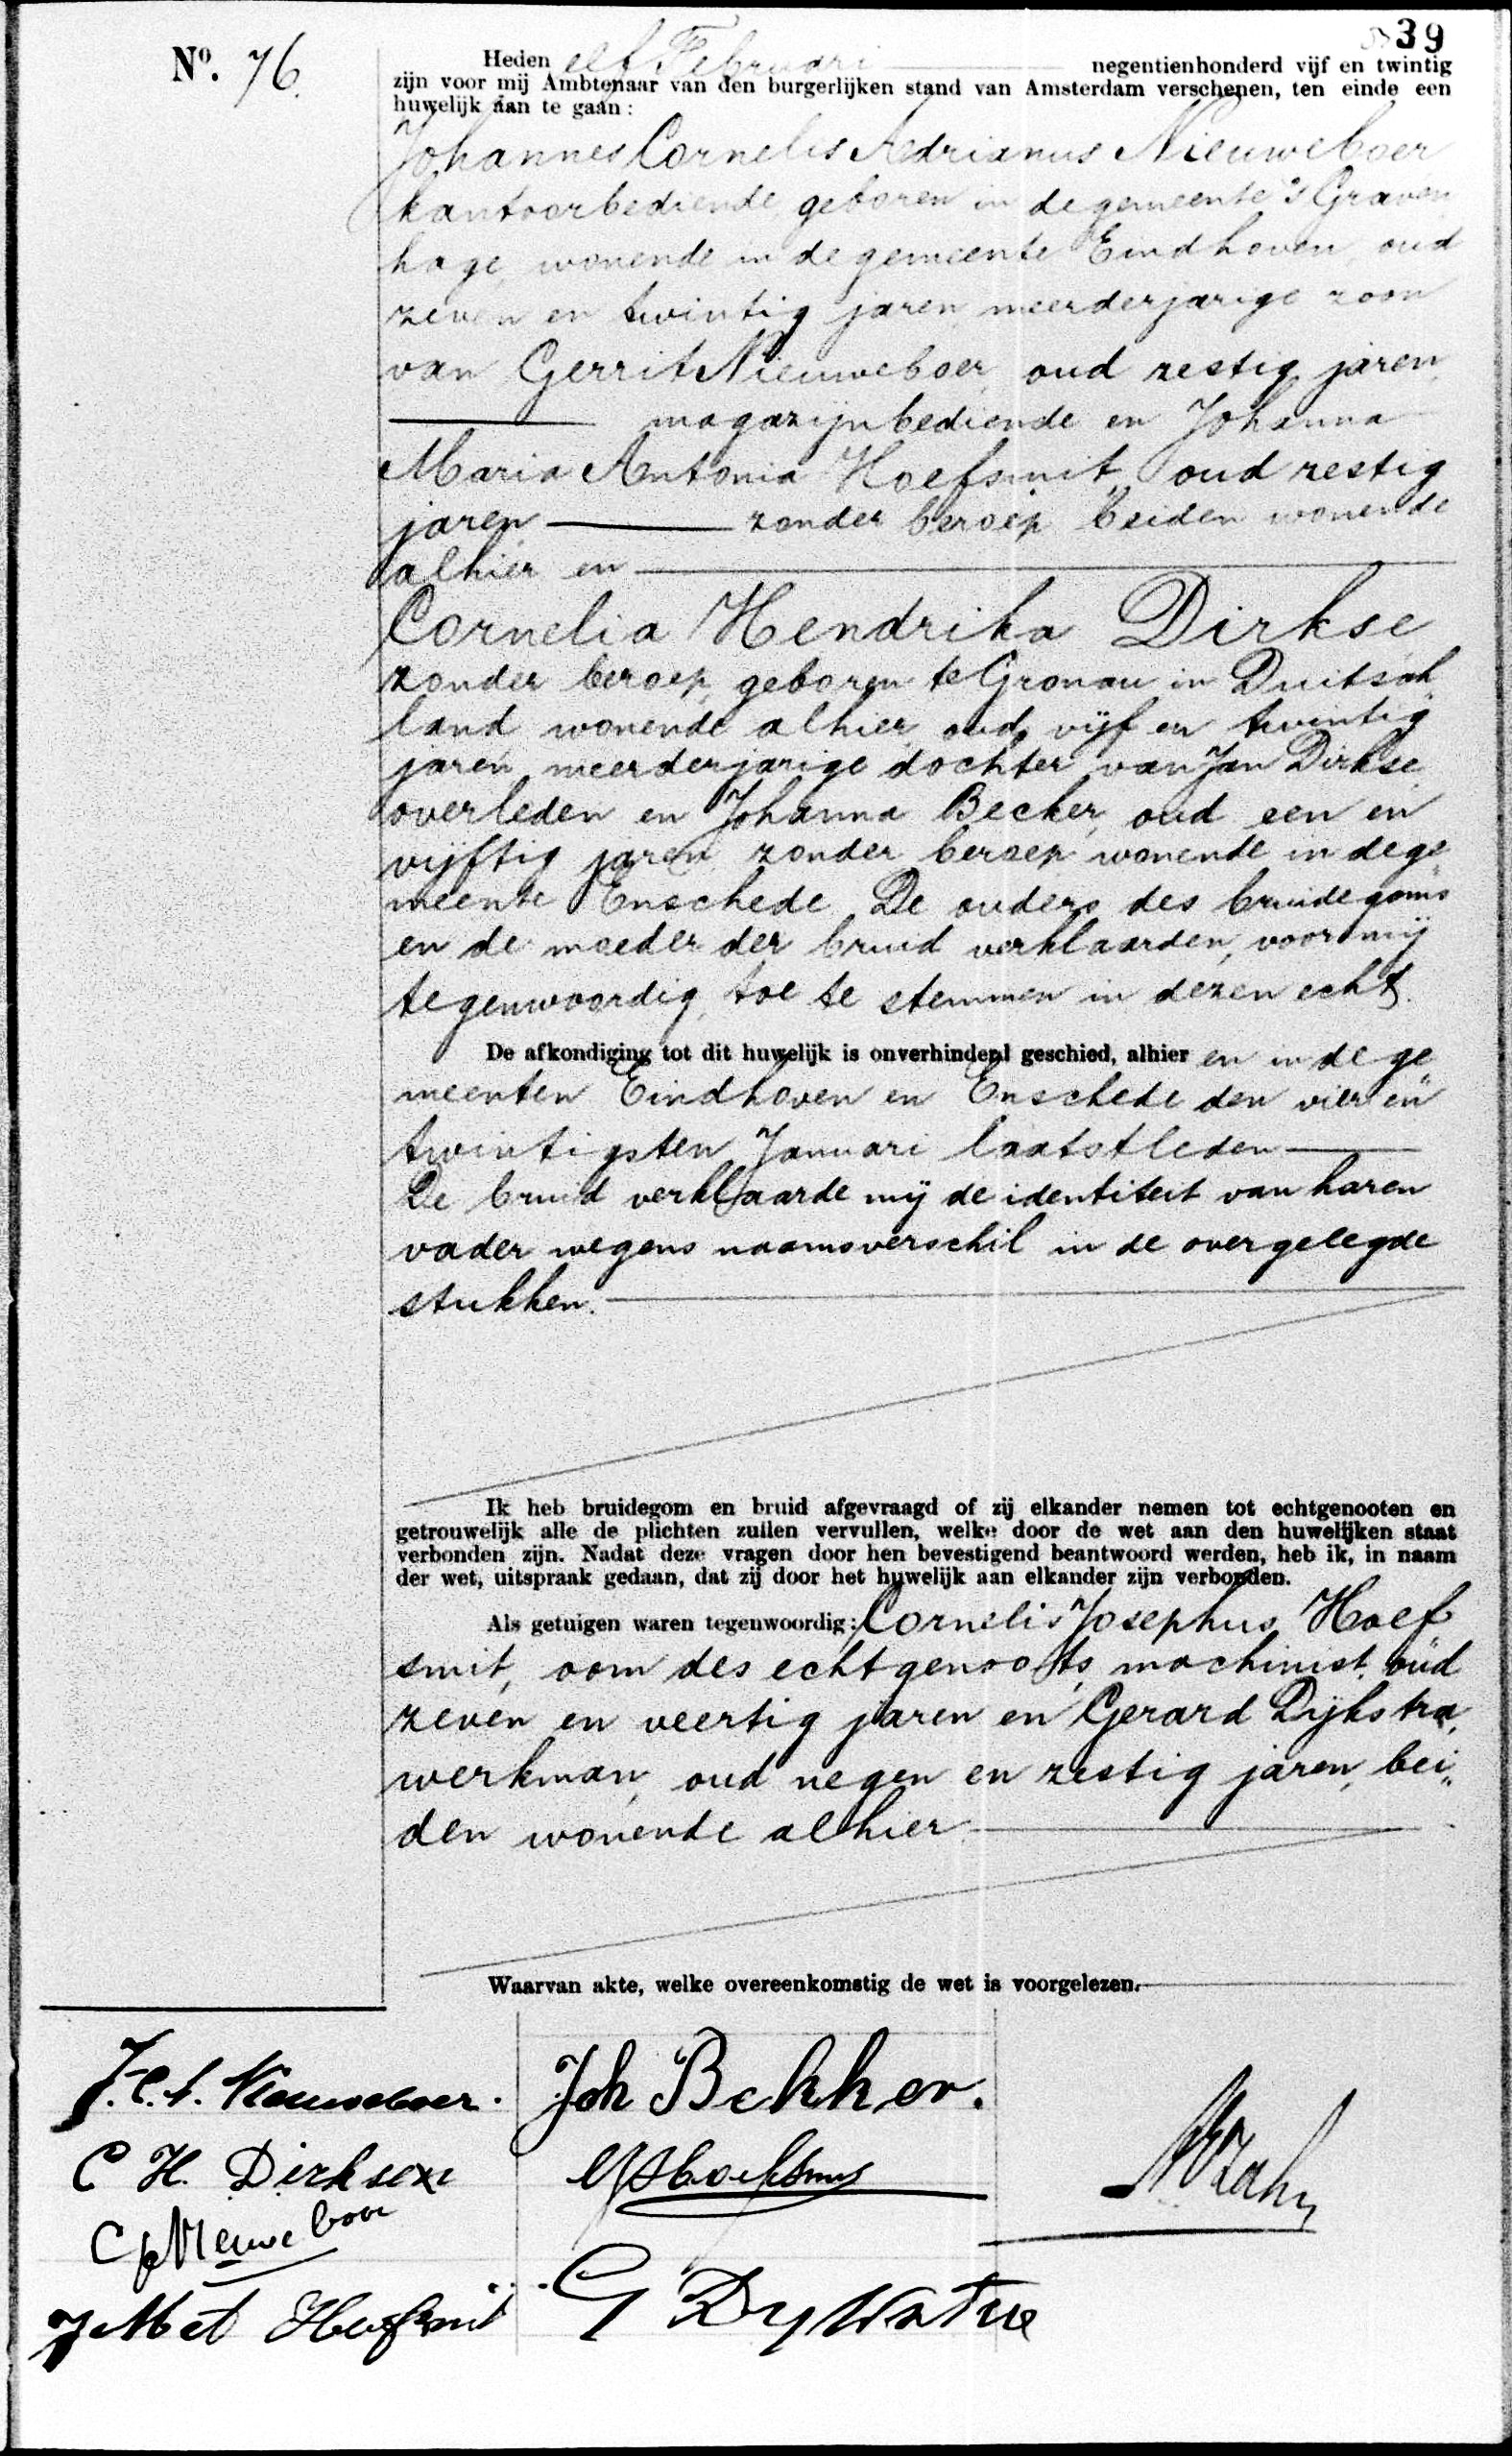 39
No. 76.
Heden elf Februari negentienhonderd vijf en twintig
zijn voor mij Ambtenaar van den burgerlijken stand van Amsterdam verschenen, ten einde een
huwelijk aan te gaan:
Johannes Cornelis Adrianus Nieuweboer
kantoorbediende, geboren in de gemeente 's Graven
hage, wonende in de gemeente Eindhoven, oud
zeven en twintig jaren, meerderjarige zoon
van Gerrit Nieuweboer, oud zestig jaren,
magazijnbediende en Johanna
Maria Antonia Hoefsmit, oud zestig
jaren zonder beroep, beiden wonende
alhier en
Cornelia Hendrika Dirkse
zonder beroep, geboren te Gronau in Duitsch„
land, wonende alhier, oud vijf en twintig
jaren, meerderjarige dochter van Jan Dirkse
overleden en Johanna Becker, oud een en
vijftig jaren, zonder beroep, wonende in de ge„
meente Enschede. De ouders des bruidegoms
en de moeder der bruid verklaarden, voor mij
tegenwoordig, toe te stemmen in dezen echt.
De afkondiging tot dit huwelijk is onverhinderd geschied, alhier en in de ge
meenten Eindhoven en Enschede den vier en
twintigsten Januari laatstleden
De bruid verklaarde mij de identiteit van haren
vader wegens naamsverschil in de overgelegde
stukken.
Ik heb bruidegom en bruid afgevraagd of zij elkander nemen tot echtgenooten en
getrouwelijk alle de plichten zullen vervullen, welke door de wet aan den huwelijken staat
verbonden zijn. Nadat deze vragen door hen bevestigend beantwoord werden, heb ik, in naam
der wet, uitspraak gedaan, dat zij door het huwelijk aan elkander zijn verbonden.
Als getuigen waren tegenwoordig: Cornelis Josephus Hoef
smit, oom des echtgenoots, machinist, oud
zeven en veertig jaren en Gerard Dijkstra,
werkman, oud negen en zestig jaren, bei„
den wonende alhier.
Waarvan akte, welke overeenkomstig de wet is voorgelezen.
J.C.A. Nieuweboer.
Joh Bekker.
C H. Dirksen
Nieuweboer
Hoefsmit
G Dykstra